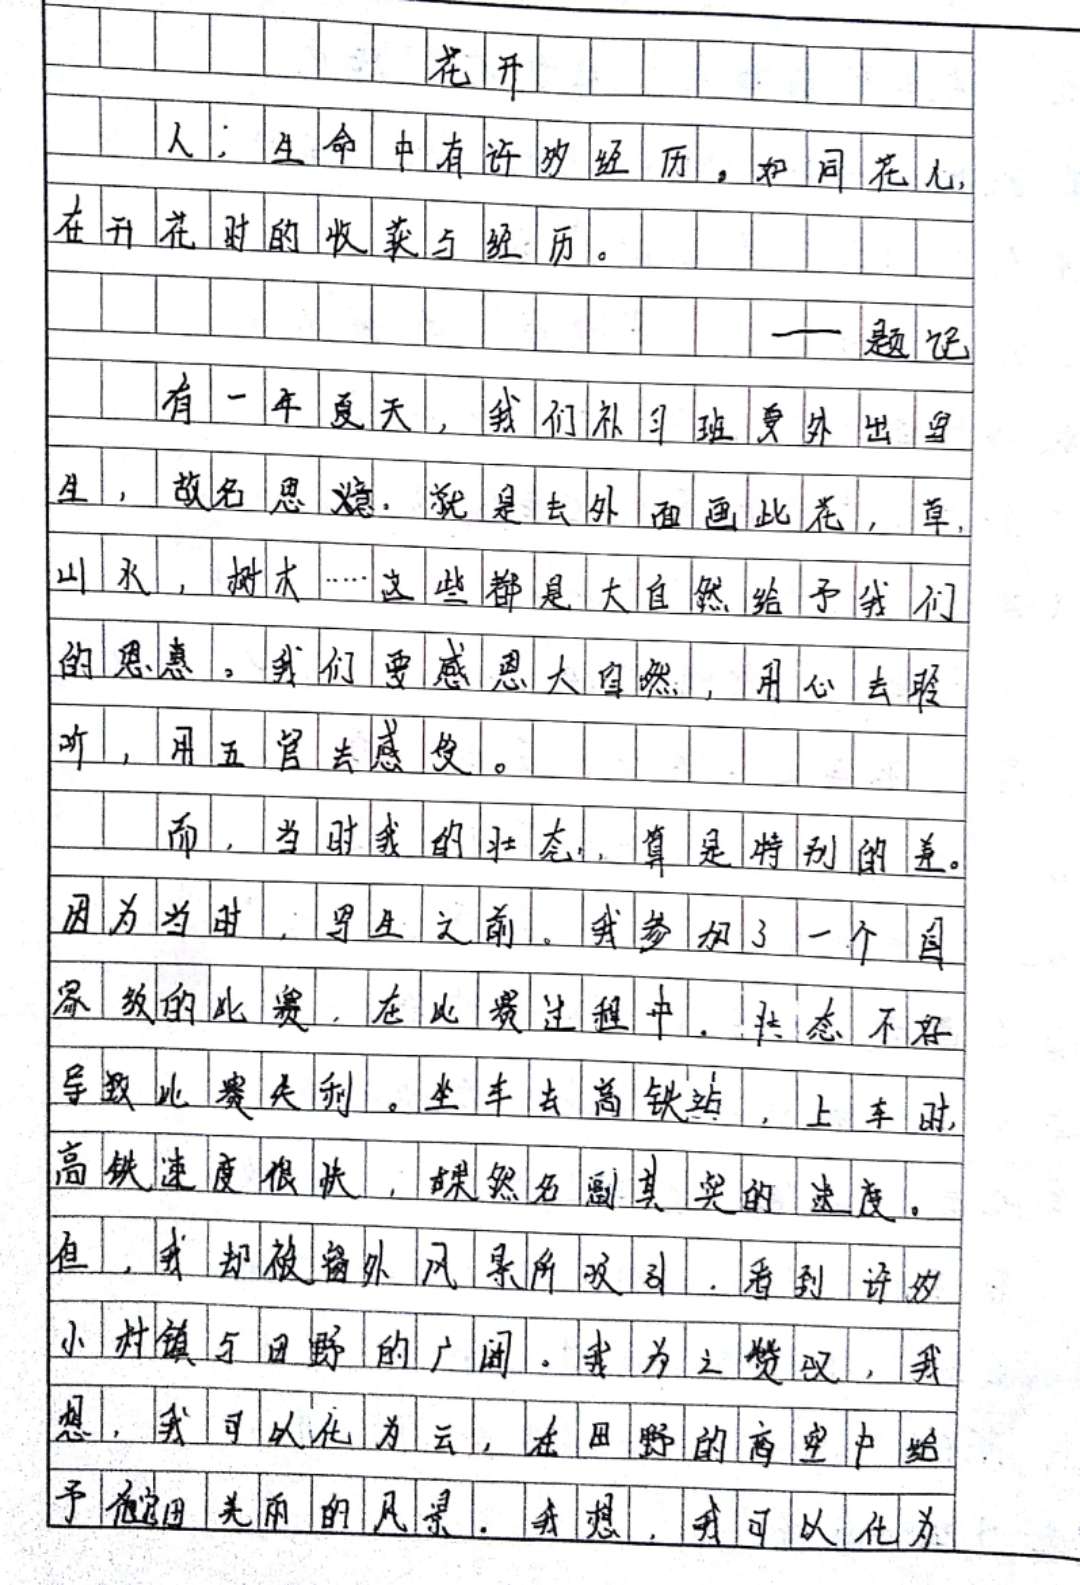 花开
人；生命中有许多经历。如同花儿,
在开花时的收获与经历。
——题记
有一年夏天，我们补习班要外出写
生，故名思意．就是去外面画些花，草,
山水，树木……这些都是大自然给予我们
的恩惠。我们要感恩大自然，用心去聆
听，用五官去感受。
而，当时我的壮态，算是特别的差。
因为当时，写生之前。我参加了一个国
家级的比赛．在比赛过程中．壮态不好
导致比赛失利。坐车去高铁站，上车时,
高铁速度很快，果然名副其实的速度。
但，我却被窗外风景所吸引．看到许多
小村镇与田野的广阔．我为之赞叹，我
想，我可以化为云，在田野的高空中给
予田美丽的风景．我想，我可以化为